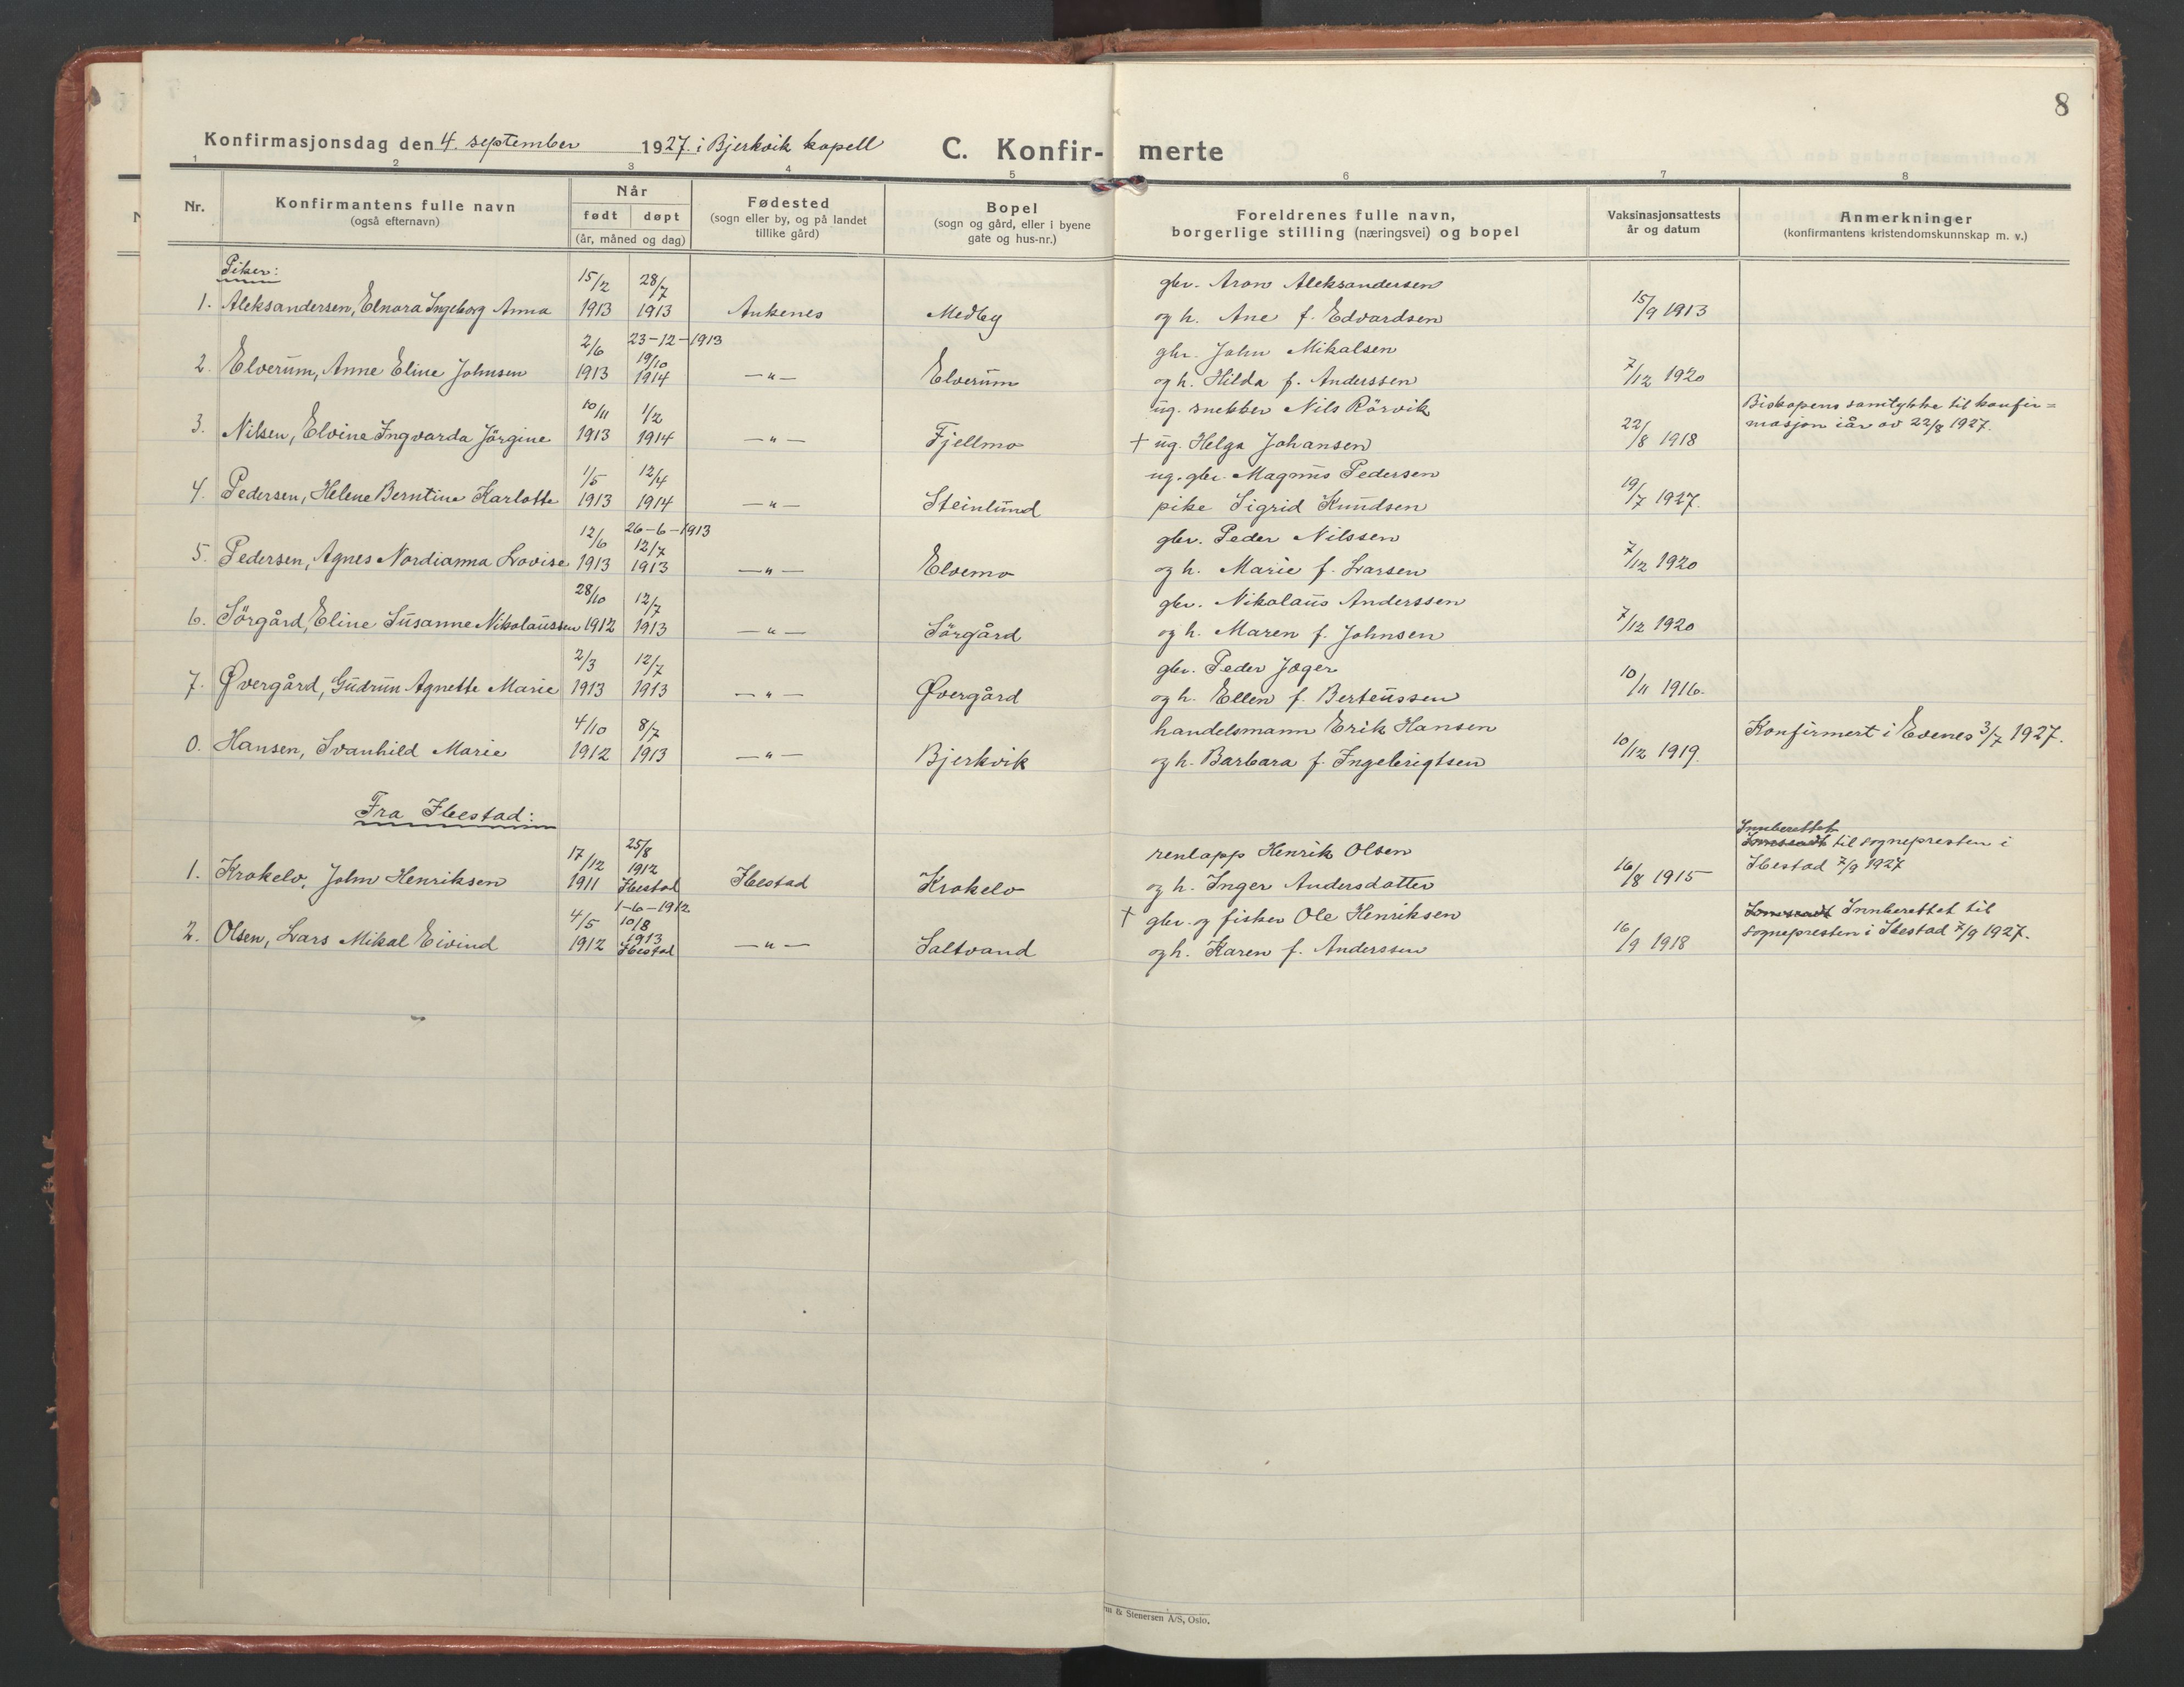 8
Konfirmasjonsdag den 4. september 1927. i Bjerkvik kapell
C. Konfir- merte
1 2 3 4 5 6 7 8
Nr.
Konfirmantens fulle navn
(også efternavn)
Når
født døpt
(år, måned og dag)
Fødested
(sogn eller by, og på landet
tillike gård)
Bopel
(sogn og gård, eller i byene
gate og hus-nr.)
Foreldrenes fulle navn,
borgerlige stilling (næringsvei) og bopel
Vaksinasjonsattests
år og datum
Anmerkninger
(konfirmantens kristendomskunnskap m. v.)
Piker:
15/2 28/7 gbr. Aron Aleksandersen
1. Aleksandersen, Elnora Ingeborg Anna 1913 1913 Ankenes Medby og h. Ane f. Edvardsen 15/9 1913
2/6 23-12-1913 19/10 gbr. John Mikalsen
2. Elverum, Anne Eline Johnsen 1913 1914 —"— Elverum og h. Hilda f. Anderssen 7/12 1920
10/11 1/2 ug. snekker Nils Rörvik Biskopens samtykke til konfir=
3. Nilsen, Elvine Ingvarda Jörgine 1913 1914 —"— Fjellmo † ug. Helga Johansen 22/8 1918 masjon iår av 22/8 1927.
1/5 12/4 ug. gbr. Magnus Pedersen
4. Pedersen, Helene Berntine Karlotte 1913 1914 —"— Steinlund pike Sigrid Knudsen 19/7 1927.
12/6 26-6-1913 12/7 gbr. Peder Nilssen
5. Pedersen, Agnes Nordianna Lovise 1913 1913 —"— Elvemo og h. Marie f. Larsen 7/12 1920
28/10 12/7 gbr. Nikolaus Anderssen
6. Sörgård, Eline Susanne Nikolaussen 1912 1913 —"— Sörgård og h. Maren f. Johnsen 7/12 1920
2/3 12/7 gbr. Peder Jæger
7. Øvergård, Gudrun Agnette Marie 1913 1913 —"— Øvergård og h. Ellen f. Berteussen 10/11 1916.
4/10 8/7 handelsmann Erik Hansen Konfirmert i Evenes 3/7 1927.
0. Hansen, Svanhild Marie 1912 1913 —"— Bjerkvik og h. Barbara f. Ingebrigtsen 10/12 1919.
Fra Ibestad:
Innberettet
17/12 25/8 1912 renlapp Henrik Olsen til sognepresten i
1. Krokelv, John Henriksen 1911 Ibestad Ibestad Krokelv og h. Inger Andersdatter 16/8 1915 Ibestad 7/9 1927
4/5 1-6-1912 10/8 1913 † gbr. og fisker Ole Henriksen Innberettet til
2. Olsen, Lars Mikal Eivind 1912 Ibestad —"— Saltvand og h. Karen f. Anderssen 16/9 1918 sognepresten i Ibestad 7/9 1927.
& Stenersen A/S, Oslo.